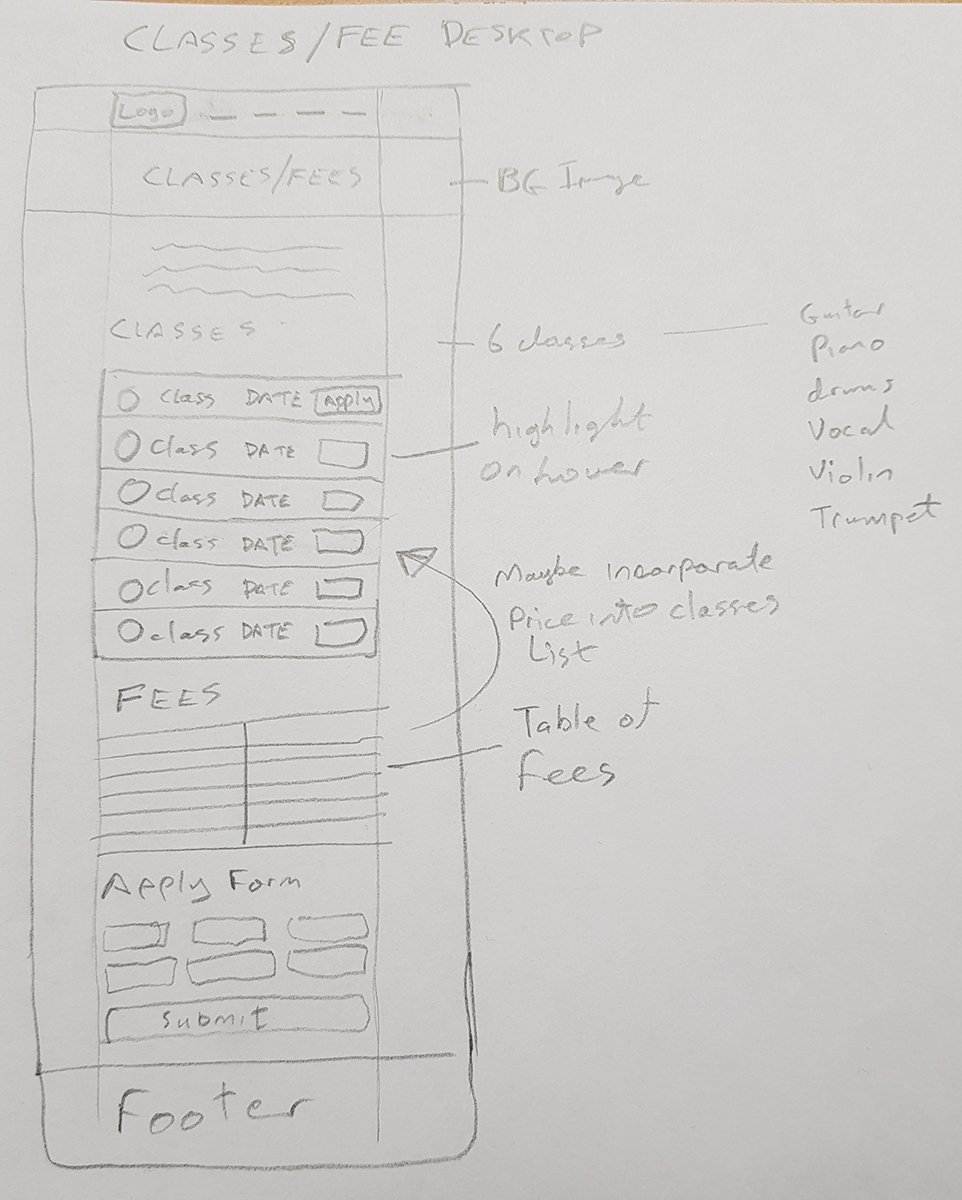 CLASSES/FEE DESKTOP
Logo
CLASSES/FEES
BG Image
CLASSES
6 classes
Guitar
Piano
drums
Vocal
Violin
Trumpet
Class DATE Apply
Class DATE
class DATE
class DATE
class DATE
class DATE
highlight
on hover
Maybe incorparate
Price into classes
List
FEES
Table of
fees
Apply Form
Submit
Footer